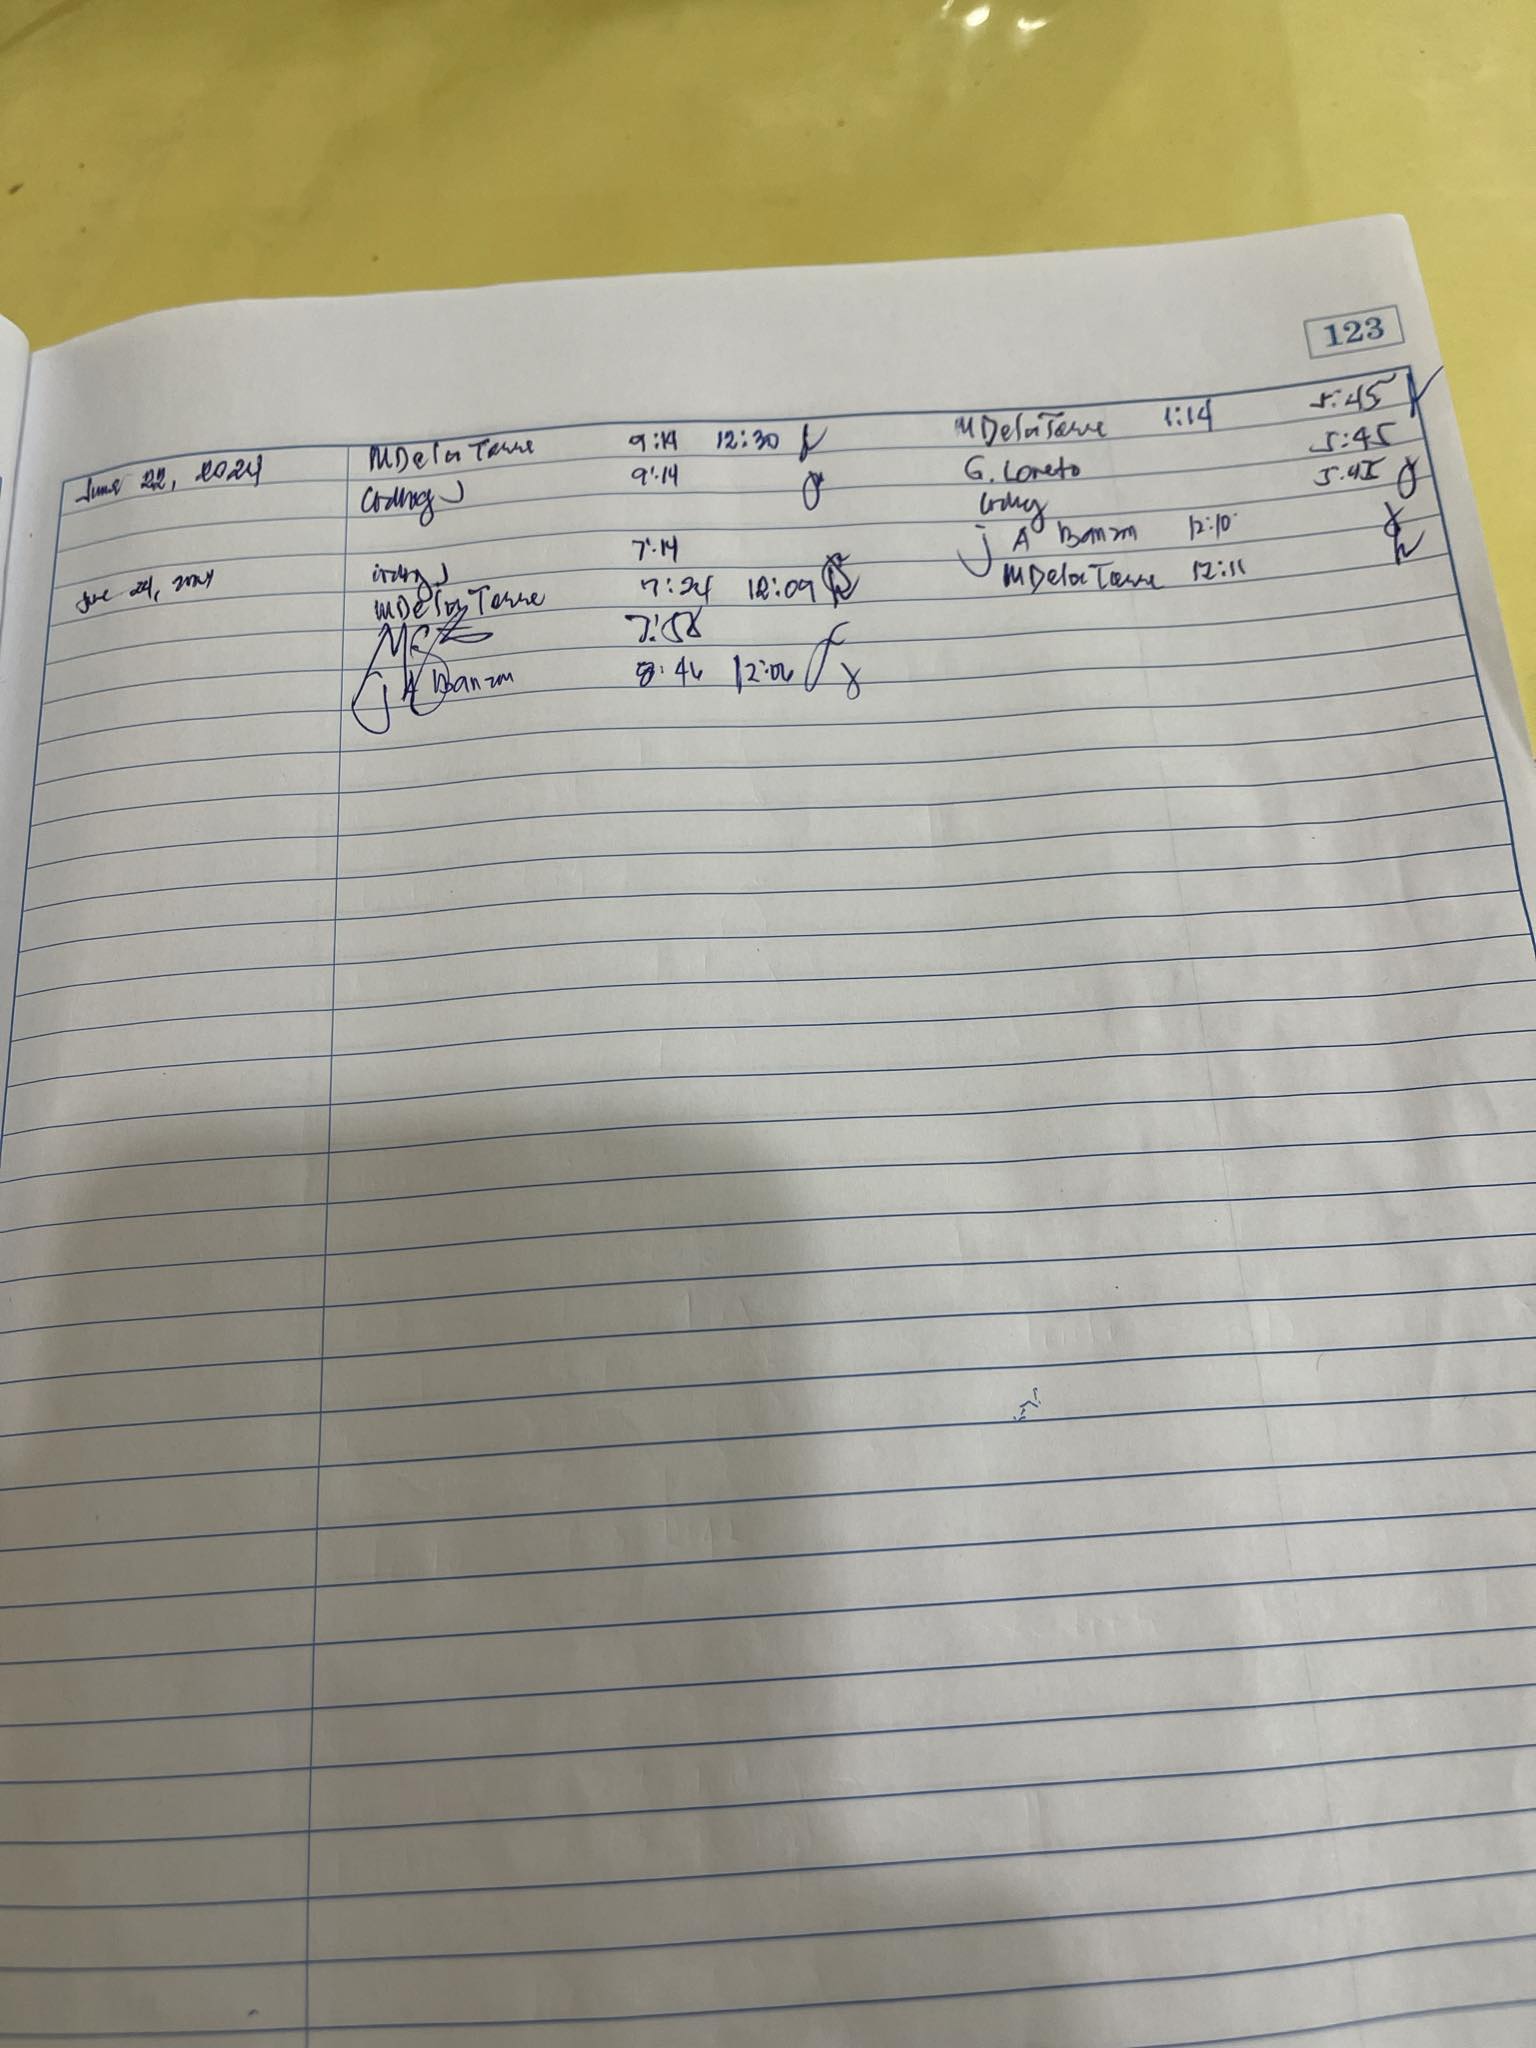 123
June 22, 2024 MDelaTorre 9:14 12:30 MDelaTorre 1:14 5:45
9:14 G. Loreto 5:45
5:45
7:14 A Banzon 12:10
June 24, 2024 MDelaTorre 7:24 12:09 MDelaTorre 12:11
7:58
A Banzon 8:46 12:06